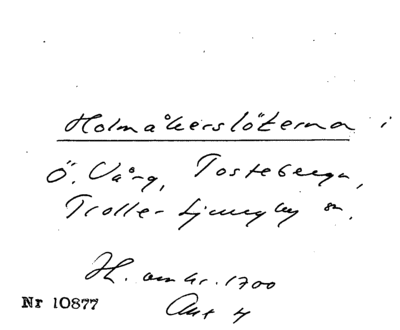 Holmåkerslöterna i
Ö. Vång, Tosteberga,
Trolle-Ljungby sn.
H. omkr. 1700
Nr 10877
Akt 4